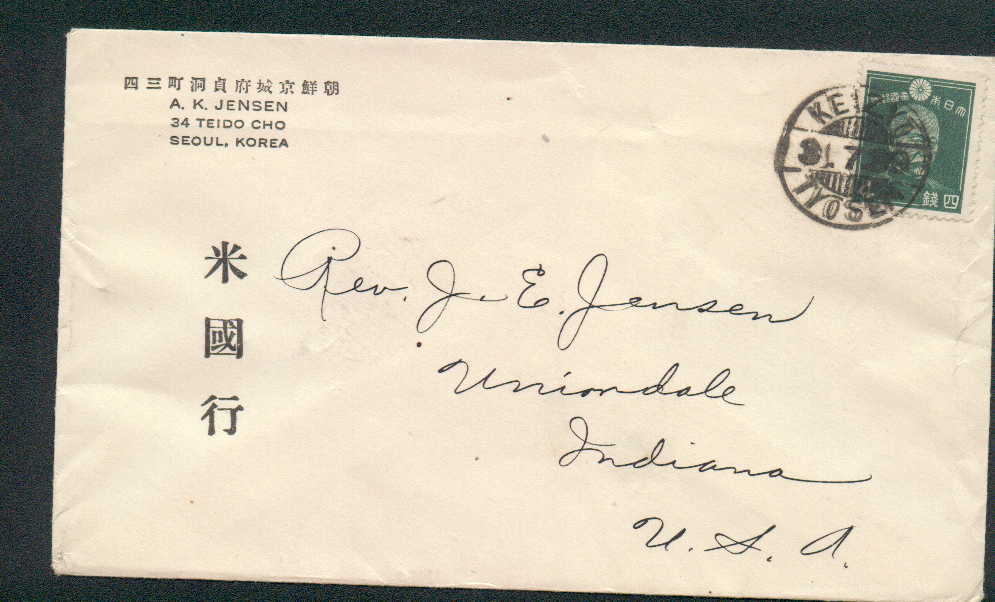 朝鮮京城府貞洞町三四
A. K. JENSEN
34 TEIDO CHO
SEOUL, KOREA
大日本帝國郵便
四錢
KEIJO
31. 7.
米國行
Rev. J. E. Jensen
Uniondale
Indiana
U. S. A.